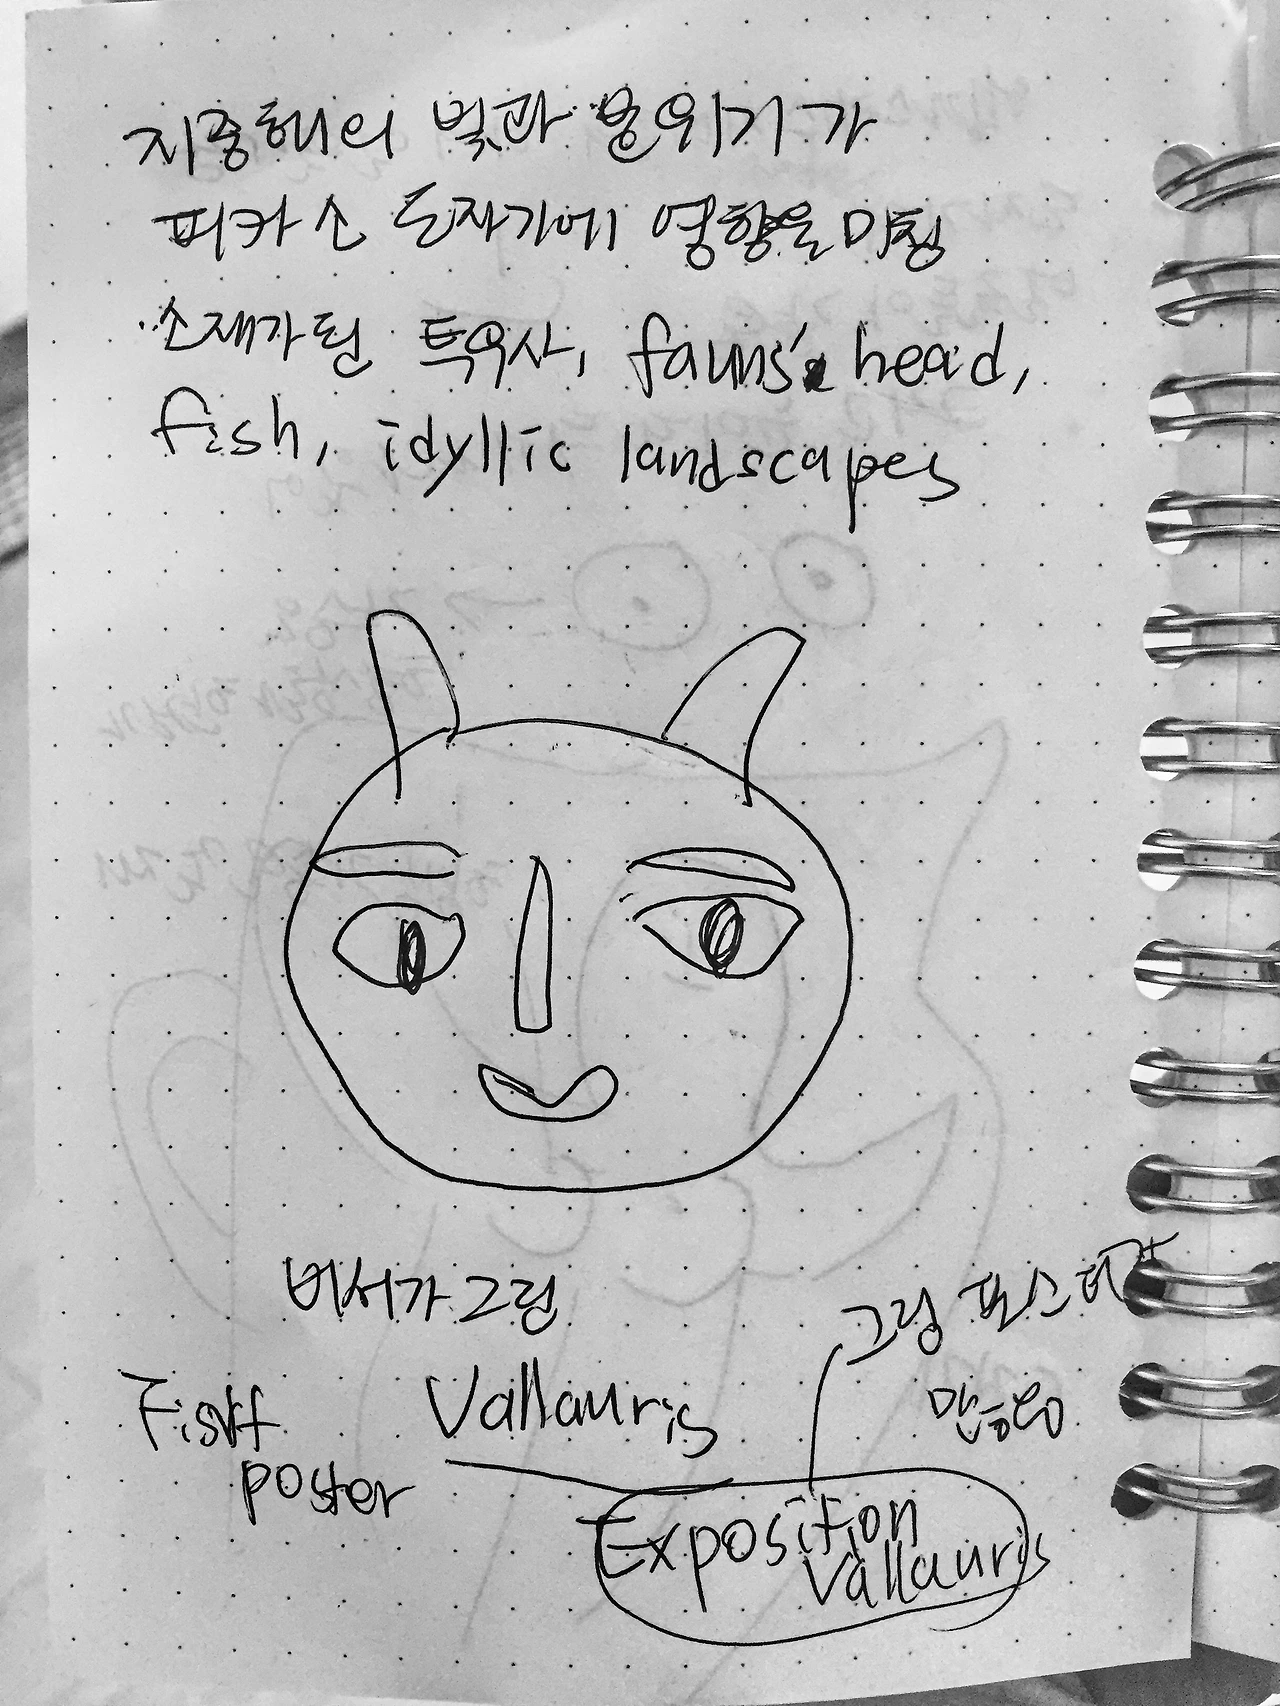 지중해의 빛과 분위기가
피카소 도자기에 영향을 미침
소재가 된 투우사, fauns's head,
fish, idyllic landscapes
비서가 그림
그림 포스터만
만들었음
Vallauris
poster
Exposition
Vallauris